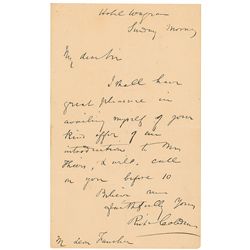 Hotel Wagram
Sunday Morning
My dear Sir
I shall have
great pleasure in
availing myself of your
kind offer of an
introduction to Mr
Thiers, & will call
on you before 10
Believe me
faithfully Yours
Richd Cobden
M. Leon Faucher